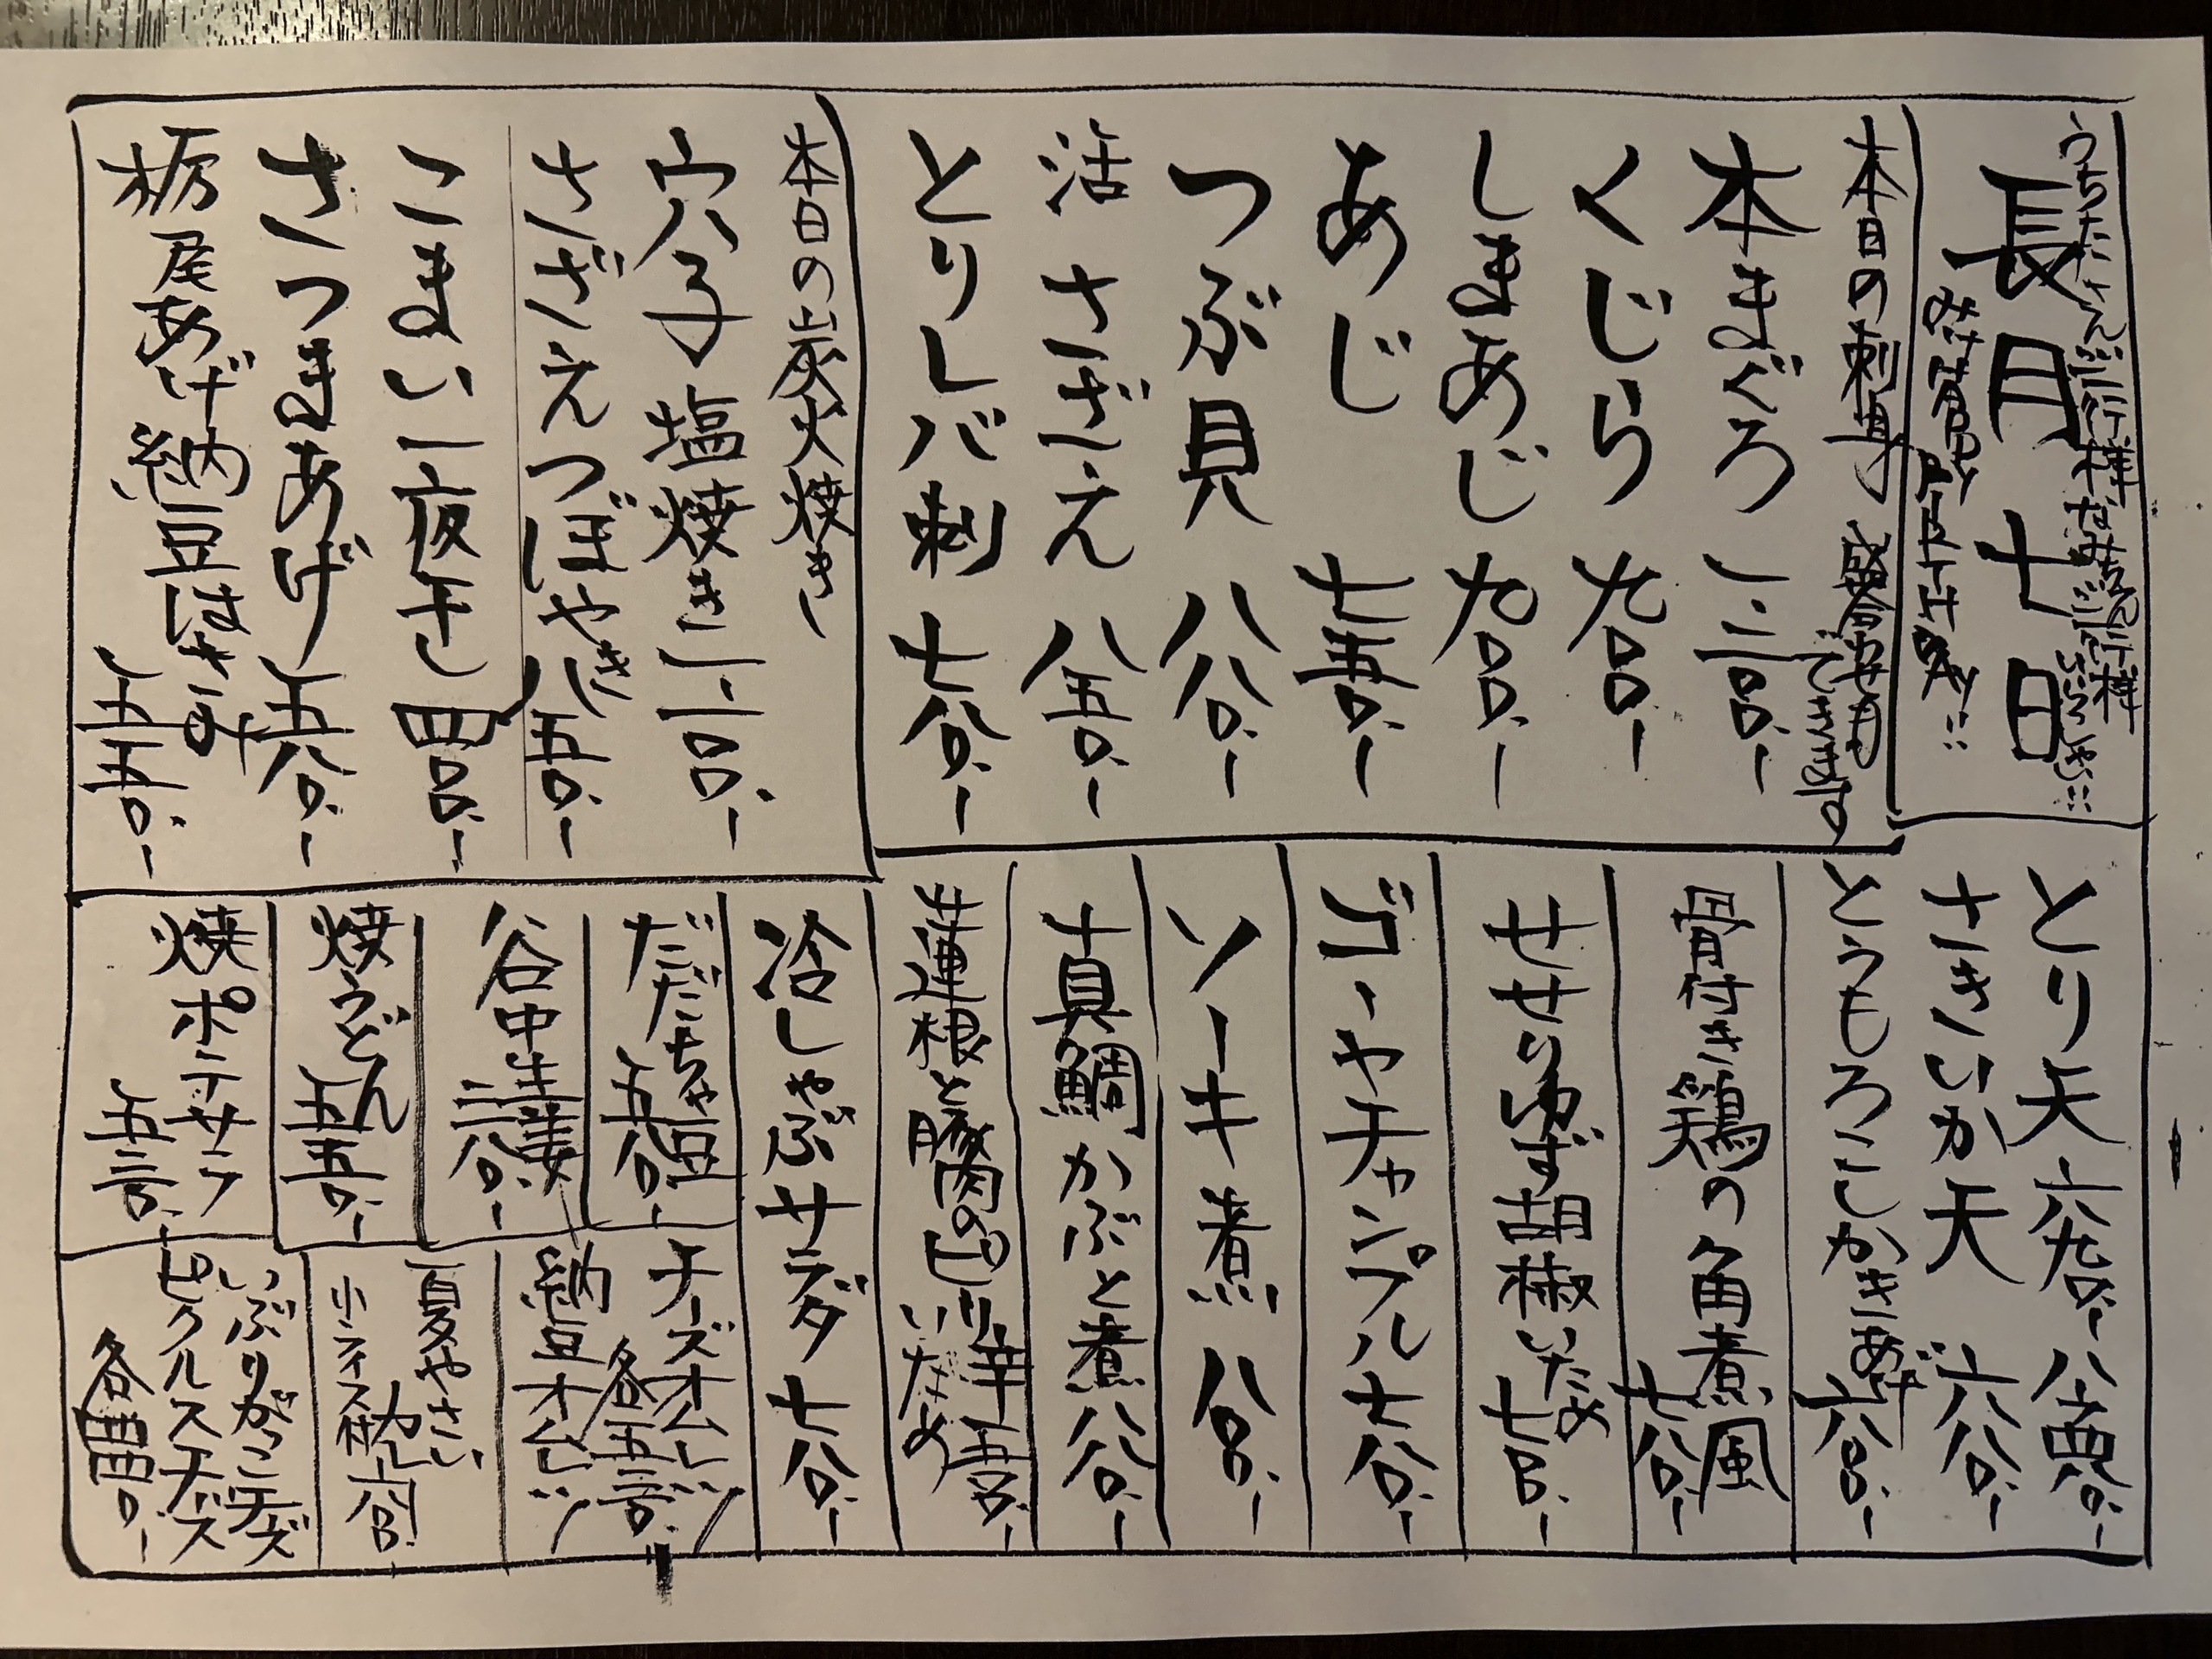 長月七日
本日の刺身
盛合せもできます
本まぐろ 一.二〇〇.-
くじら 九〇〇.-
しまあじ 九〇〇.-
あじ 七五〇.-
つぶ貝 八八〇.-
活さざえ 八五〇.-
とりレバ刺 七八〇.-
本日の炭火焼き
穴子塩焼き 一.二〇〇.-
さざえつぼやき 八五〇.-
こまい一夜干し 四〇〇.-
さつまあげ 五八〇.-
栃尾あげ納豆はさみ
五五〇.-
とり天
さきいか天 六八〇.-
とうもろこしかきあげ 六八〇.-
骨付き鶏の角煮風
七八〇.-
せせりゆず胡椒いため
七〇〇.-
ゴーヤチャンプル 七八〇.-
ソーキ煮 八〇〇.-
真鯛かぶと煮 八八〇.-
蓮根と豚肉のピリ辛
いため
冷しゃぶサラダ 七八〇.-
だだちゃ豆
五八〇.-
谷中生姜
三八〇.-
焼うどん
五五〇.-
焼ポテサラ
五二〇.-
チーズオムレツ
納豆オムレツ
各五二〇.-
夏やさい
小ライス
いぶりがっこチーズ
ピクルスチーズ
各四四〇.-